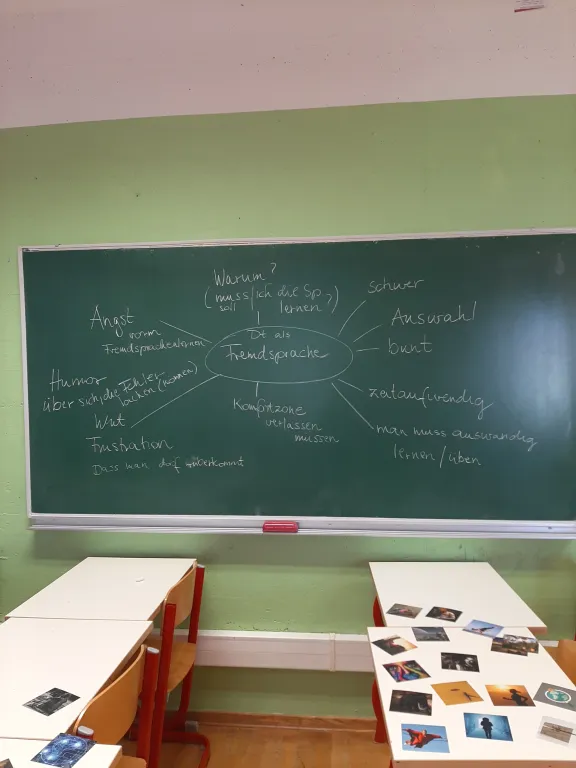 Warum?
(muss/ich die Sp.
soll lernen?)
schwer
Angst
vorm
Fremdsprachenlernen
Dt als
Fremdsprache
Auswahl
bunt
Humor
über sich/die Fehler
lachen (können)
Wut
Frustration
Dass man
Komfortzone
verlassen
müssen
zeitaufwendig
man muss auswendig
lernen/üben